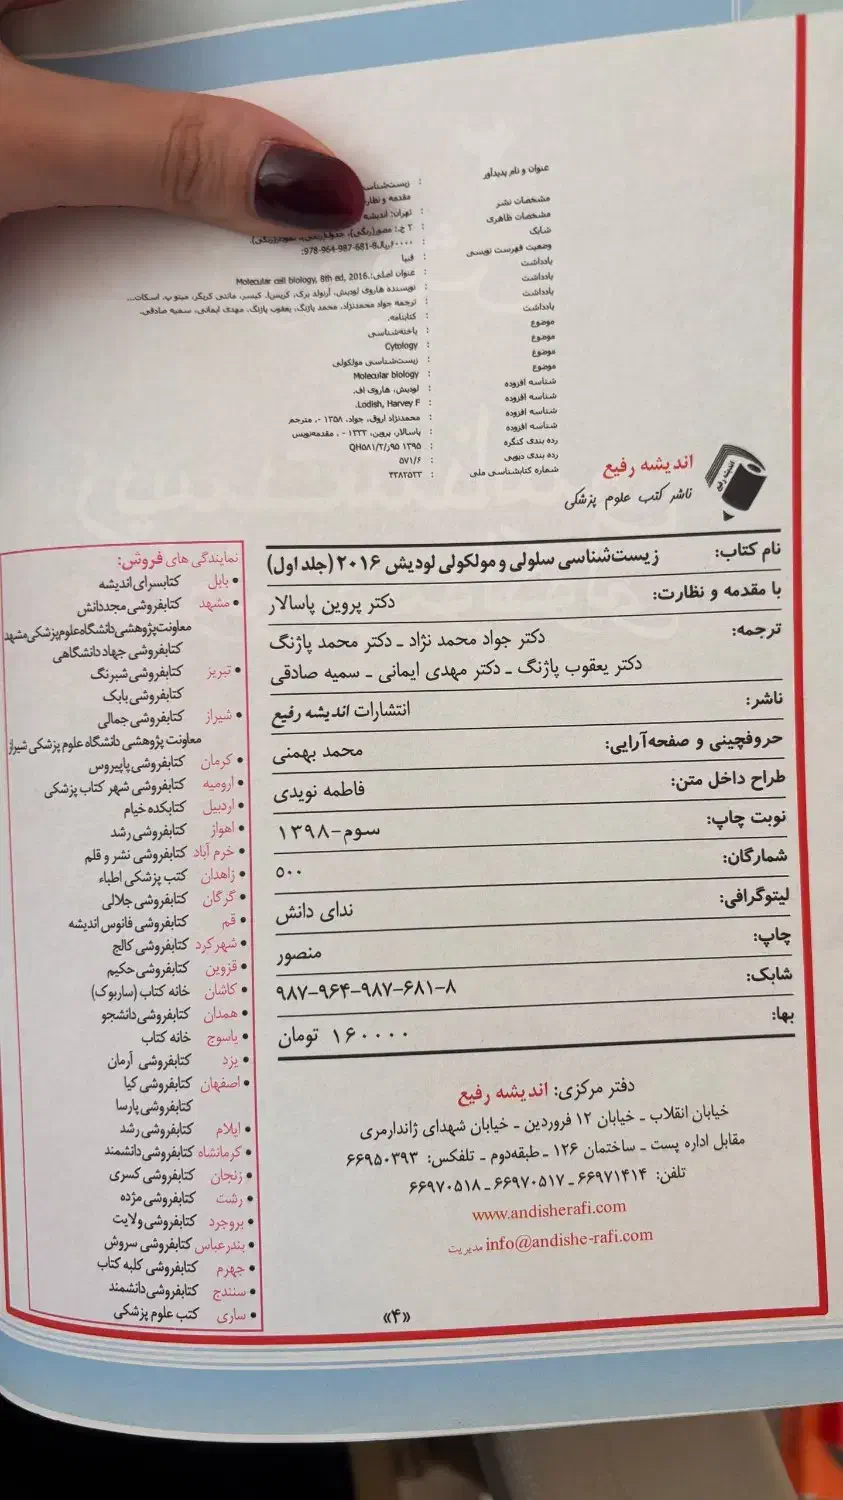 عنوان و نام پدیدآور : زیست‌شناسی
مقدمه و نظارت
مشخصات نشر : تهران: اندیشه
مشخصات ظاهری : ۲ ج.: مصور(رنگی)، جدول(رنگی)، نمودار(رنگی).
شابک : ۶۰۰۰۰۰ریال978-964-987-681-8:
وضعیت فهرست نویسی : فیپا
یادداشت : عنوان اصلی: Molecular cell biology, 8th ed, 2016.
یادداشت : نویسنده هاروی لودیش، آرنولد برک، کریس‌ا. کیسر، مانتی کریگر، میتو پ. اسکات...
یادداشت : ترجمه جواد محمدنژاد، محمد پاژنگ، یعقوب پاژنگ، مهدی ایمانی، سمیه صادقی.
یادداشت : کتابنامه.
موضوع : یاخته‌شناسی
موضوع : Cytology
موضوع : زیست‌شناسی مولکولی
موضوع : Molecular biology
شناسه افزوده : لودیش، هاروی اف.
شناسه افزوده : Lodish, Harvey F.
شناسه افزوده : محمدنژاد اروق، جواد، ۱۳۵۸ -، مترجم
شناسه افزوده : پاسالار، پروین، ۱۳۳۳ - ، مقدمه‌نویس
رده بندی کنگره : QH۵۸۱/۲/ز۹۵ ۱۳۹۵
رده بندی دیویی : ۵۷۱/۶
شماره کتابشناسی ملی : ۴۳۸۲۵۳۳
اندیشه رفیع
اندیشه رفیع
ناشر کتب علوم پزشکی
نام کتاب: زیست‌شناسی سلولی و مولکولی لودیش ۲۰۱۶ (جلد اول)
با مقدمه و نظارت: دکتر پروین پاسالار
ترجمه: دکتر جواد محمد نژاد ـ دکتر محمد پاژنگ
دکتر یعقوب پاژنگ ـ دکتر مهدی ایمانی ـ سمیه صادقی
ناشر: انتشارات اندیشه رفیع
حروفچینی و صفحه‌آرایی: محمد بهمنی
طراح داخل متن: فاطمه نویدی
نوبت چاپ: سوم-۱۳۹۸
شمارگان: ۵۰۰
لیتوگرافی: ندای دانش
چاپ: منصور
شابک: ۹۸۷-۹۶۴-۹۸۷-۶۸۱-۸
بها: ۱۶۰۰۰۰ تومان
دفتر مرکزی: اندیشه رفیع
خیابان انقلاب ـ خیابان ۱۲ فروردین ـ خیابان شهدای ژاندارمری
مقابل اداره پست ـ ساختمان ۱۲۶ ـ طبقه‌دوم ـ تلفکس: ۶۶۹۵۰۳۹۳
تلفن: ۶۶۹۷۱۴۱۴ ـ ۶۶۹۷۰۵۱۷ ـ ۶۶۹۷۰۵۱۸
www.andisherafi.com
info@andishe-rafi.com مدیریت
نمایندگی های فروش:
• بابل کتابسرای اندیشه
• مشهد کتابفروشی مجددانش
معاونت پژوهشی دانشگاه علوم پزشکی مشهد
کتابفروشی جهاد دانشگاهی
• تبریز کتابفروشی شبرنگ
کتابفروشی بابک
• شیراز کتابفروشی جمالی
معاونت پژوهشی دانشگاه علوم پزشکی شیراز
• کرمان کتابفروشی پاپیروس
• ارومیه کتابفروشی شهر کتاب پزشکی
• اردبیل کتابکده خیام
• اهواز کتابفروشی رشد
• خرم آباد کتابفروشی نشر و قلم
• زاهدان کتب پزشکی اطباء
• گرگان کتابفروشی جلالی
• قم کتابفروشی فانوس اندیشه
• شهرکرد کتابفروشی کالج
• قزوین کتابفروشی حکیم
• کاشان خانه کتاب (ساربوک)
• همدان کتابفروشی دانشجو
• یاسوج خانه کتاب
• یزد کتابفروشی آرمان
• اصفهان کتابفروشی کیا
کتابفروشی پارسا
• ایلام کتابفروشی رشد
• کرمانشاه کتابفروشی دانشمند
• زنجان کتابفروشی کسری
• رشت کتابفروشی مژده
• بروجرد کتابفروشی ولایت
• بندرعباس کتابفروشی سروش
• جهرم کتابفروشی کلبه کتاب
• سنندج کتابفروشی دانشمند
• ساری کتب علوم پزشکی
«۴»